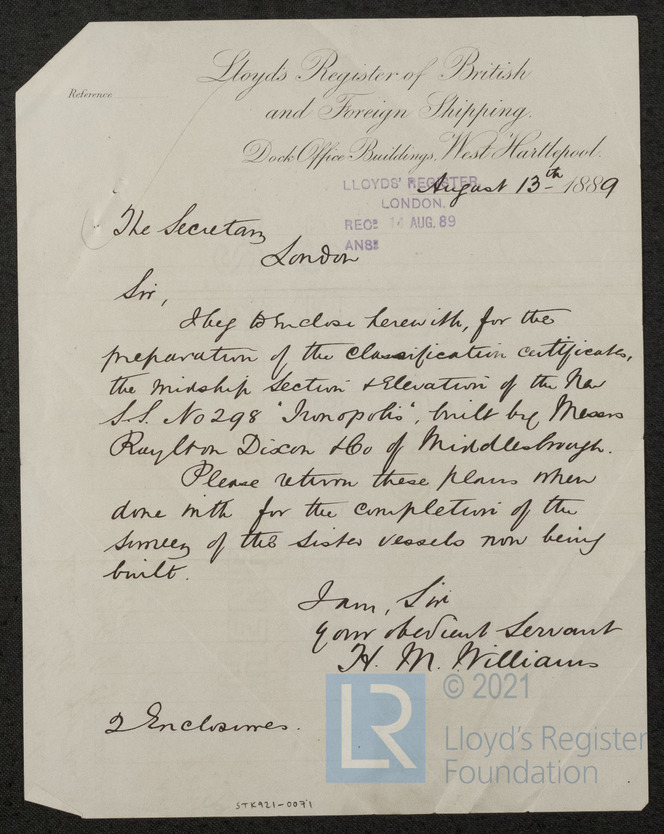 Lloyds Register of British
and Foreign Shipping.
Reference
Dock Office Buildings, West Hartlepool.
August 13th 1889
LLOYDS' REGISTER
LONDON.
RECD 14 AUG. 89
ANSD
The Secretary
London
Sir,
I beg to enclose herewith, for the
preparation of the classification certificates,
the midship section & Elevation of the New
S.S. No 298 "Ironopolis", built by Messrs
Raylton Dixon & Co of Middlesbrough.
Please return these plans when
done with for the completion of the
survey of the sister vessels now being
built.
I am, Sir
your obedient Servant
H. M. Williams
2 Enclosures.
© 2021
LR
Lloyd's Register
Foundation
STK921-0071